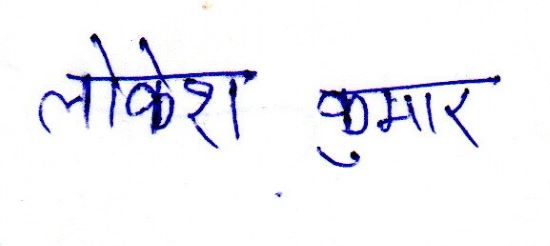 लोकेश कुमार